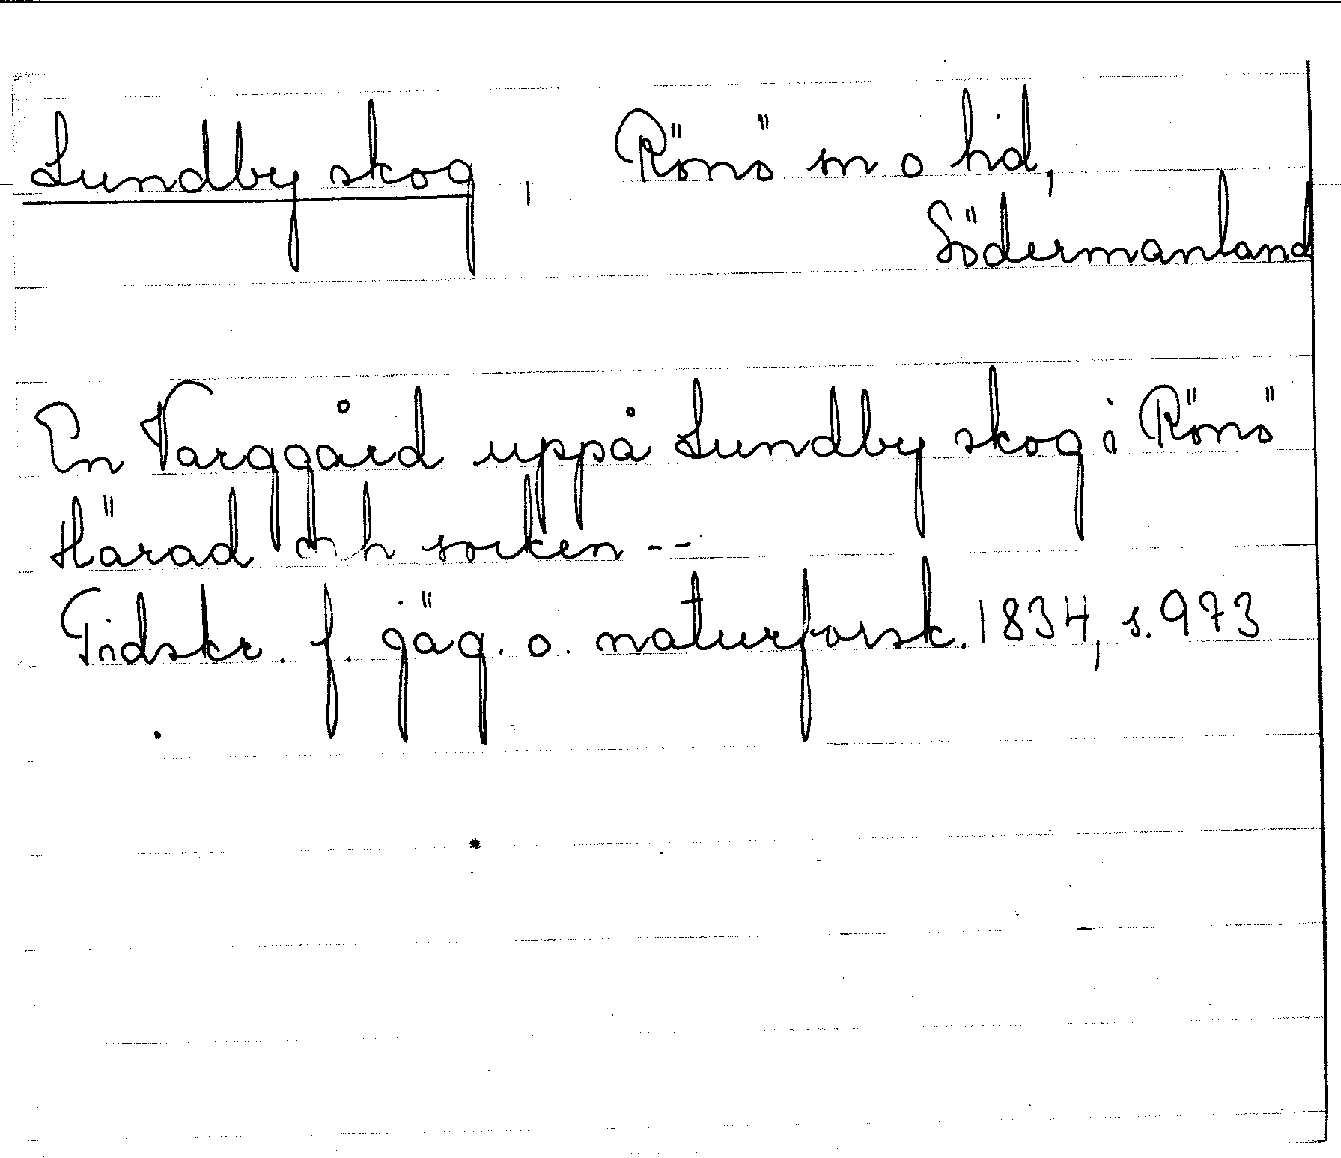 Lundby skog, Rönö sn o hd,
Södermanland
En Varggård uppå Lundby skog i Rönö
Härad och socken --
Tidskr. f. jäg. o. naturforsk. 1834, s. 973